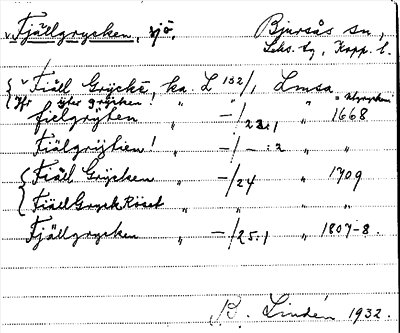 v Fjällgrycken, sjö. Bjursås sn,
Leks. tg, Kopp. l.
{ v Fiäll Grÿckē ka. L 132/1 Lmsa
{ Jfr öster grycken! " " "
fielgrÿten " —/22:1 " 1668
Fiälgrÿtien! " —/—:2 " "
{ Fiäll Grÿcken " —/24 " 1709
{ Fiäll Gryck Röset " " " "
Fjällgrycken " —/25.1 " 1807-8.
B. Lindén 1932.